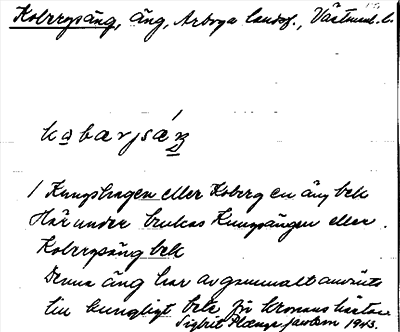 Kobergsäng, äng, Arboga landsf., Västml. l.
kobarjsäŋ
I Kungshagen eller Koberg en äng bek
Här under brukas Kungsängen eller
Kobergsäng bek
Denna äng har av gammalt använts
till kungligt bete för kronans hästar
Sigrid Jacobson 1913.